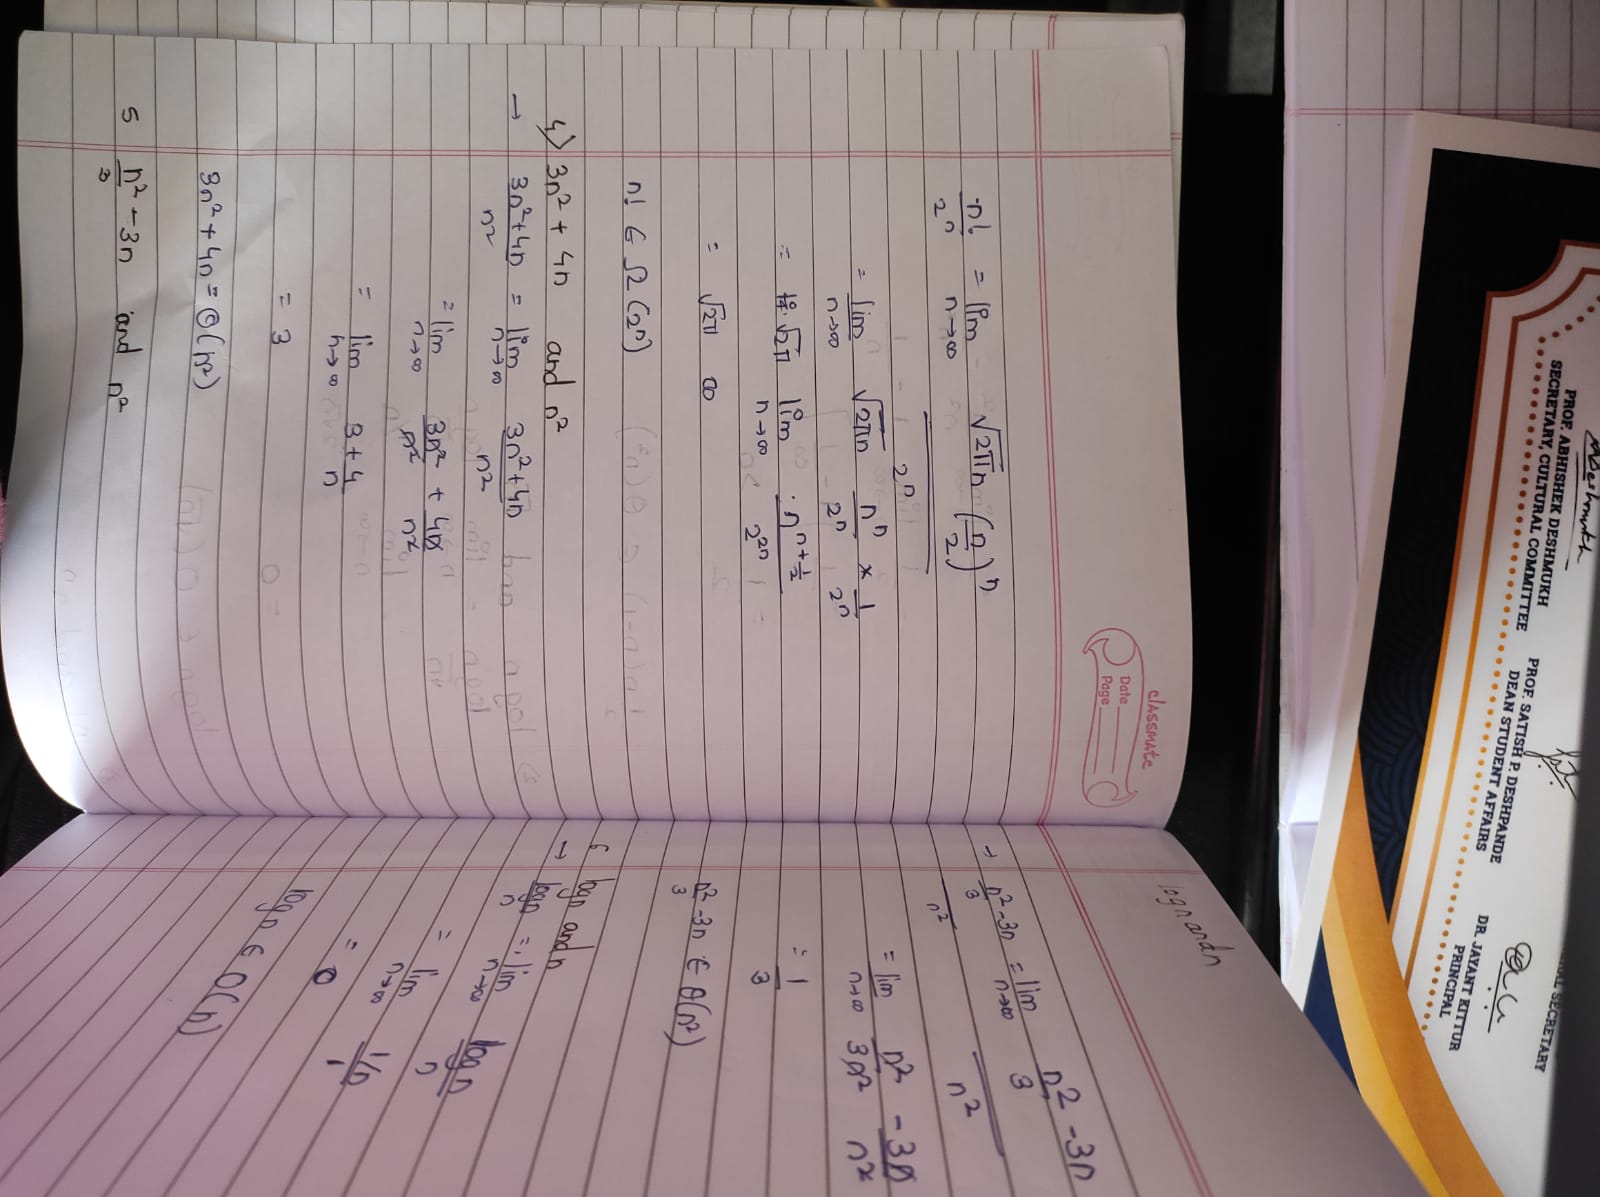 PROF. ABHISHEK DESHMUKH
SECRETARY, CULTURAL COMMITTEE
PROF. SATISH P. DESHPANDE
DEAN STUDENT AFFAIRS
SECRETARY
DR. JAYANT KITTUR
PRINCIPAL
classmate
Date
Page
n!/2^n = lim n→∞ √2πn (n/2)^n / 2^n
= lim n→∞ √2πn n^n/2^n × 1/2^n
= √2π lim n→∞ n^(n+1/2) / 2^2n
= √2π ∞
n! ∈ Ω (2^n)
4) 3n² + 4n and n²
→ 3n²+4n / n² = lim n→∞ 3n²+4n / n²
= lim n→∞ 3n²/n² + 4n/n²
= lim n→∞ 3 + 4/n
= 3
3n² + 4n = Θ(n²)
5 n²/3 - 3n and n²
logn and n
→ n²/3 - 3n / n² = lim n→∞ n²/3 - 3n / n²
= lim n→∞ n²/3n² - 3n/n²
= 1/3
n²/3 - 3n ∈ Θ(n²)
6 logn and n
→ logn/n = lim n→∞ logn/n
= lim n→∞ 1/n / 1
= 0
logn ∈ O(n)